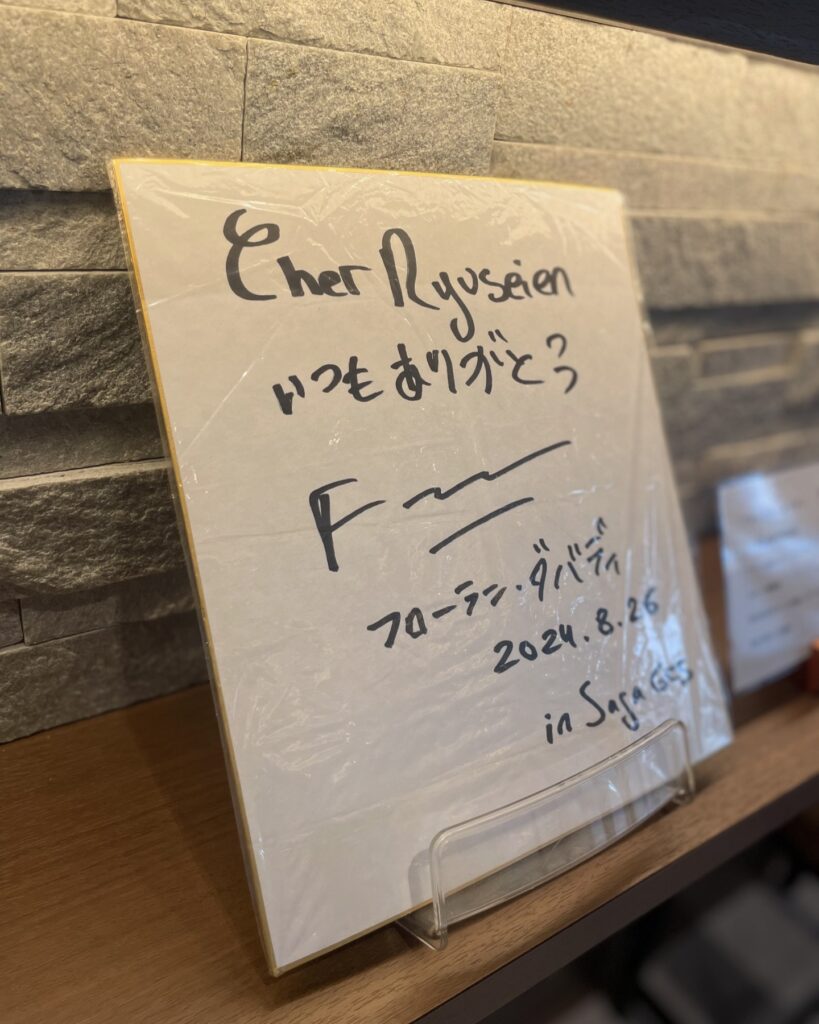 Cher Ryuseien
いつもありがとう
F
フローラン・ダバディ
2024.8.26
in Saga